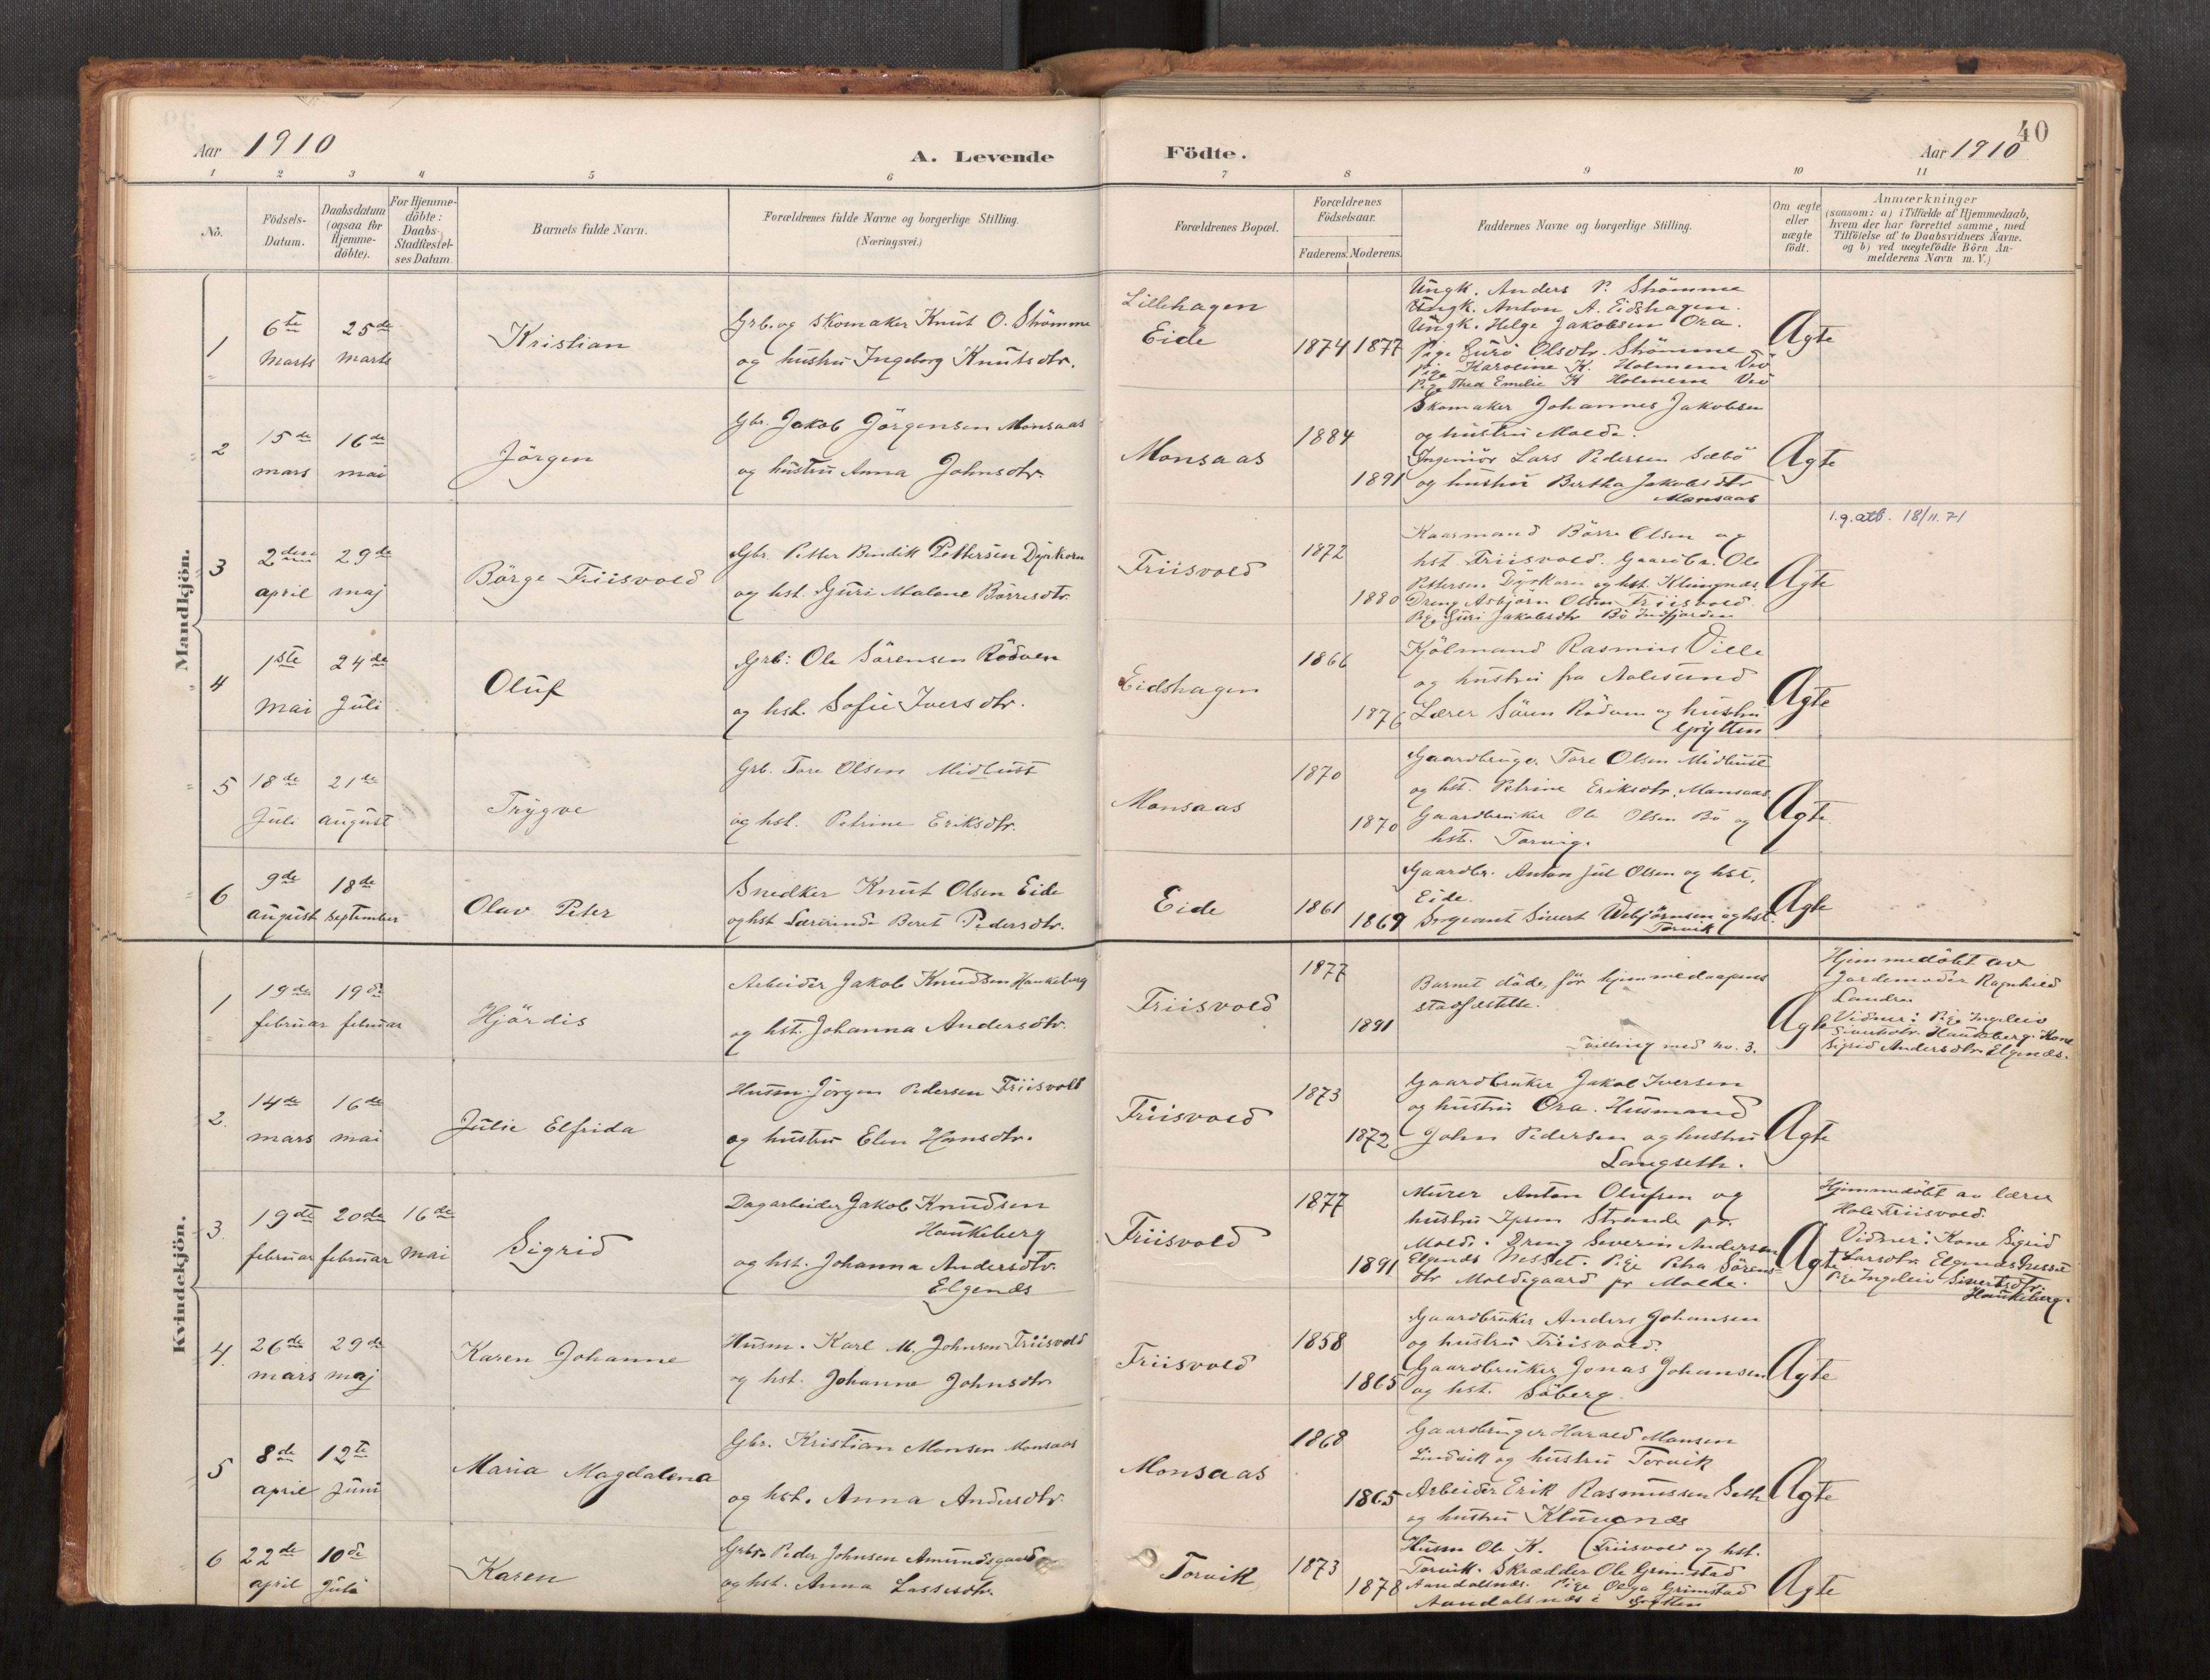 40
Aar 1910
A. Levende Födte.
Aar 1910
1 2 3 4 5 6 7 8 9 10 11
No.
Födsels-
Datum.
Daabsdatum
(ogsaa för
Hjemme-
döbte).
For Hjemme-
döbte:
Daabs-
Stadfæstel-
ses Datum
Barnets fulde Navn.
Forældrenes fulde Navne og borgerlige Stilling.
(Næringsvei.)
Forældrenes Bopæl.
Forældrenes
Födselsaar.
Faderens. Moderens.
Faddernes Navne og borgerlige Stilling.
Om ægte
eller
uægte
født.
Anmærkninger
(saasom: a) i Tilfælde af Hjemmedaab,
hvem der har forrettet samme, med
Tilföielse af to Daabsvidners Navne.
og b) ved uægtefödte Börn An-
melderens Navn m. V.)
Mandkjön.
1
6te
Marts
25de
marts
Kristian
Grb. og Skomaker Knut O. Strömme
og hustru Ingeborg Knutsdtr.
Lillehagen
Eide
1874 1877
Ungk. Anders P. Strömme
Ungk. Anton A. Eidshagen.
Ungk. Helge Jakobsen Ora.
Pige Guro Olsdtr. Strömme
Pige Karoline K. Holmem
Pige Thea Emilie K Holmem
Ægte
2
15de
mars
16de
mai
Jörgen
Gbr. Jakob Jörgensen Monsaas
og hustru Anna Johnsdtr.
Monsaas
1884
1891
Skomaker Johannes Jakobsen
og hustru Molde.
Ingeniör Lars Pedersen Sæbö
og hustru Bertha Jakobsdtr
Monsaas
Ægte
3
2den
april
29de
maj
Börge Friisvold
Gbr. Petter Bendik Pettersen Dyrkorn
og hst. Guri Malene Börresdtr.
Friisvold
1872
1880
Kaarmand Börre Olsen og
hst. Friisvold. Gaardbr. Ole
Pettersen Dyrkorn og hst. Klungnæs.
Dreng Asbjörn Olsen Friisvold
Pige Guri Jakobsdtr Bö Indfjorden
Ægte
1.g. atb. 18/11.71
4
1ste
Mai
24de
Juli
Oluf
Grb: Ole Sörensen Rödven
og hst. Sofie Iversdtr.
Eidshagen
1866
1876
Kjölmand Rasmus Ville
og hustru fra Aalesund
Lærer Sören Rödven og hustru
Grytten
Ægte
5
18de
Juli
21de
august
Trygve
Grb. Tore Olsen Midtust
og hst. Petrine Eriksdtr.
Monsaas
1870
1870
Gaardbruger Tore Olsen Midtust
og hst. Petrine Eriksdtr. Monsaas
Gaardbruker Ole Olsen Bö og
hst. Torvig.
Ægte
6
9de
august
18de
september
Olav Peter
Snedker Knut Olsen Eide
og hst Lærerinde Beret Pedersdtr.
Eide
1861
1869
Gaardbr. Anton Jul Olsen og hst.
Eide.
Sergeant Sivert Webjörnsen og hst.
Torvik
Ægte
Kvindekjön.
1
19de
februar
19de
februar
Hjördis
Arbeider Jakob Knudsen Haukeberg
og hst. Johanna Andersdtr.
Friisvold
1877
1891
Barnet döde för hjemmedaapens
stadfæstelse.
Tvilling med no. 3.
Ægte
Hjemmedöbt av
Jordemoder Ragnhild
Landre
Vidner: Pige Ingeleiv
Sivertsdtr. Haukeberg. Kone
Sigrid Andersdtr. Elgenæs.
2.
14de
mars
16de
mai
Julie Elfrida
Husm. Jörgen Pedersen Friisvold
og hustru Elen Hansdtr.
Friisvold
1873
1872
Gaardbruker Jakob Iversen
og hustru Ora. Husmand
John Pedersen og hustru
Langseth.
Ægte
3.
19de
februar
20de
februar
16de
mai
Sigrid
Dagarbeider Jakob Knudsen
Haukeberg
og hst. Johanna Andersdtr.
Elgenæs
Friisvold
1877
1891
Murer Anton Olufsen og
hustru Ipsen Strande pr.
Molde. Dreng Severin Andersen
Elgenæs Nesset. Pige Petra Sörens-
dtr Moldegaard pr Molde.
Ægte
Hjemmedöbt av lærer
Hole Friisvold.
Vidner: Kone Sigrid
Larsdtr. Elgenæs Nesset
Pige Ingeleiv Sivertsdtr.
Haukeberg.
4.
26de
mars
29de
maj
Karen Johanne
Husm. Karl M. Johnsen Friisvold
og hst. Johanne Johnsdtr.
Friisvold
1858
1865
Gaardbruker Anders Johansen
og hustru Friisvold.
Gaardbruker Jonas Johansen
og hst. Söberg.
Ægte
5
8de
april
12te
Juni
Maria Magdalena
Gbr. Kristian Monsen Monsaas
og hst. Anna Andersdtr.
Monsaas
1868
1865
Gaardbruger Harald Monsen
Lindvik og hustru Torvik
Arbeider Erik Rasmussen Seth
og hustru Klungnæs
Ægte
6
22de
april
10de
Juli
Karen
Grbr. Peder Johnsen Amundsgaard
og hst. Anna Lassesdtr.
Torvik
1873
1878
Husm Ole K. Friisvold og hst.
Torvik. Skrædder Ole Grimstad
Aandalsnæs. Pige Olga Grimstad
Aandalsnæs i Grytten
Ægte